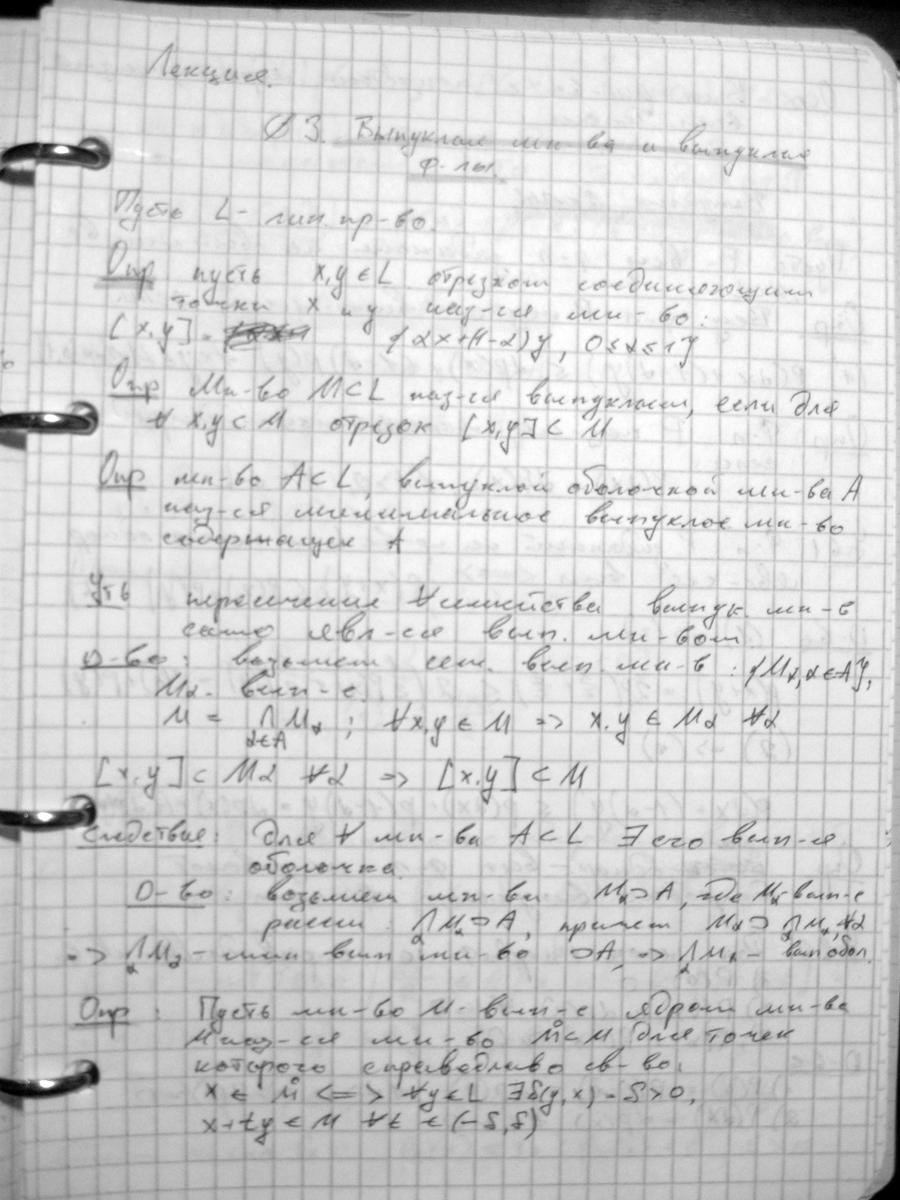 Лекция.
§ 3. Выпуклые мн-ва и выпуклые
ф-лы.
Пусть L - лин. пр-во.
Опр пусть x,y ∈ L отрезком соединяющим
точки x и y наз-ся мн-во:
[x,y] = {αx+(1-α)y, 0≤α≤1}
Опр Мн-во M⊂L наз-ся выпуклым, если для
∀ x,y ⊂ M отрезок [x,y] ⊂ M
Опр мн-во A⊂L, выпуклой оболочкой мн-ва A
наз-ся минимальное выпуклое мн-во
содержащее A
Утв пересечение ∀ семейства выпук. мн-в
само явл-ся вып. мн-вом
Д-во: возьмем сем. вып. мн-в: {Mα, α∈A},
Mα - вып-е
M = ∩ Mα ; ∀x,y ∈ M => x,y ∈ Mα ∀α
α∈A
[x,y] ⊂ Mα ∀α => [x,y] ⊂ M
Следствие: Для ∀ мн-ва A⊂L ∃ его вып-я
оболочка.
Д-во: возьмем мн-ва Mα⊃A, где Mα вып-е
рассм. ∩Mα⊃A, причем Mα⊃∩Mα, ∀α
α α
=> ∩Mα - мин вып мн-во ⊃A, => ∩Mα - вып обол.
α α
Опр: Пусть мн-во M - вып-е, ядром мн-ва
M наз-ся мн-во M̊⊂M, для точек
которого справедливо св-во:
x ∈ M̊ <=> ∀y∈L ∃δ(y,x) = δ>0,
x+ty ∈ M ∀t ∈ (-δ,δ)